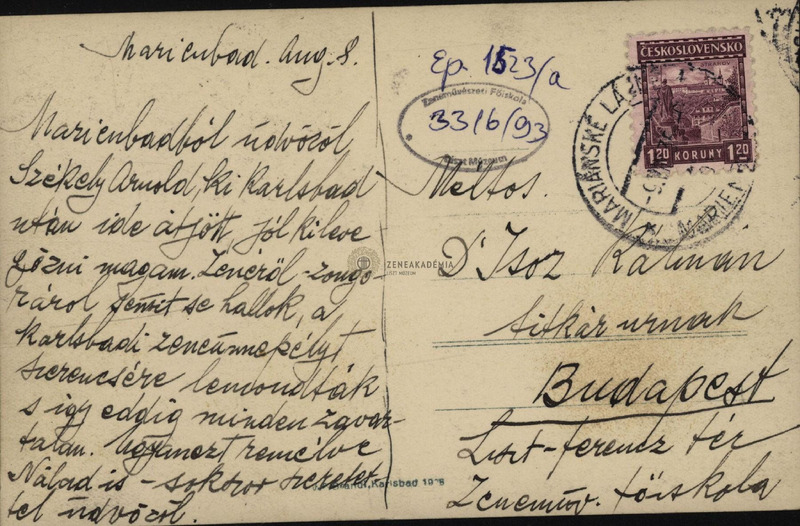 Marienbad. Aug. 8.
Marienbadból üdvözöl
Székely Arnold, ki Karlsbad
után ide átjött, jól kileve
gőzni magam. Zenéről - zongo-
ráról semit se hallok, a
Karlsbadi zeneünnepélyt
szerencsére lemondták
s így eddig minden zavar-
talan. Ugyanezt remélve
Nálad is - sokszor szeretet
tel üdvözöl.
Ep. 1523/a
Zeneművészeti Főiskola
33/6/93
Liszt Múzeum
ČESKOSLOVENSKO
1.20 KORUNY 1.20
MARIÁNSKÉ LÁZ
MARIENB
Meltos.
Dr Isoz Kálmán
titkár urnak
Budapest
Liszt-Ferencz tér
Zeneműv. főiskola
ZENEAKADÉMIA
LISZT MÚZEUM
Brandt, Karlsbad 19